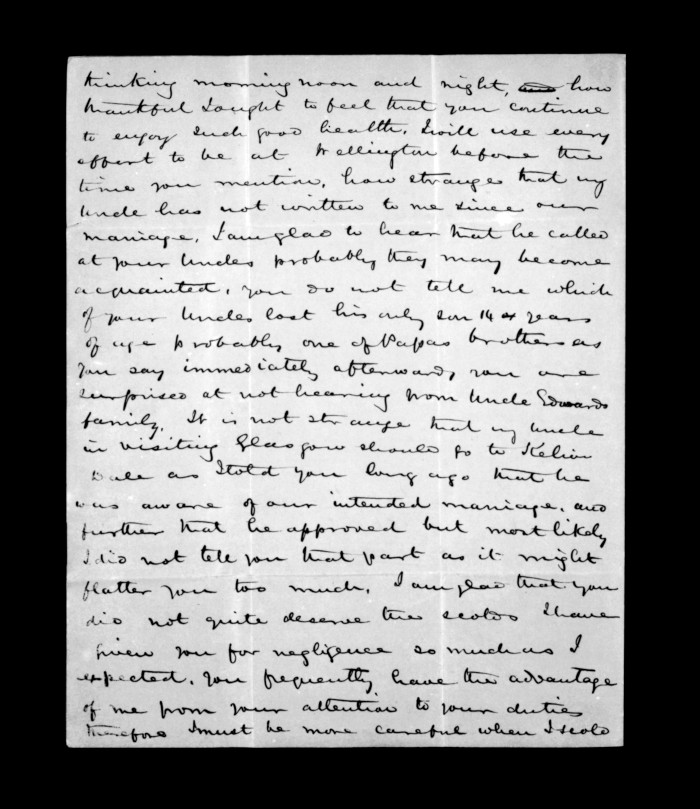 thinking morning noon and night, how
thankful I ought to feel that you continue
to enjoy such good health. I will use every
effort to be at Wellington before the
time you mention, how strange that my
Uncle has not written to me since our
marriage, I am glad to hear that he called
at your Uncles probably they may become
acquainted, you do not tell me which
of your Uncles lost his only son 14 years
of age probably one of Papas brothers as
you say immediately afterwards you are
surprised at not hearing from Uncle Edwards
family. It is not strange that my uncle
in visiting Glasgow should go to Kelvin
Dale as I told you long ago that he
was aware of our intended marriage, and
further that he approved but most likely
I did not tell you that part as it might
flatter you too much. I am glad that you
did not quite deserve the scolds I have
given you for negligence so much as I
expected. You frequently have the advantage
of me from your attention to your duties
therefore I must be more careful when I scold